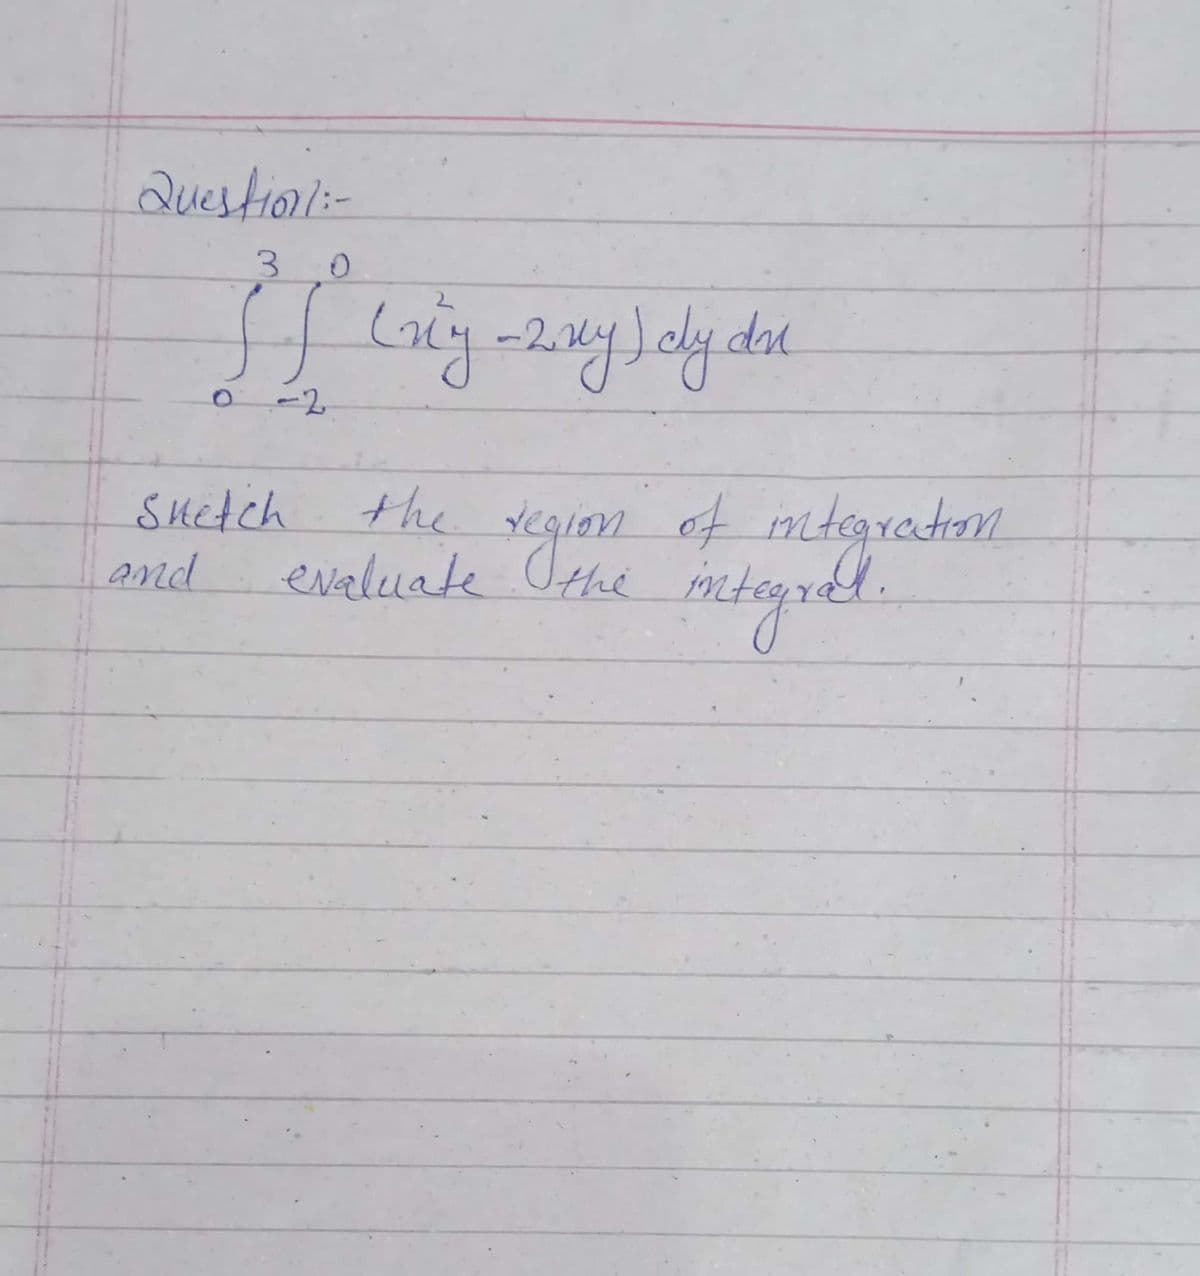 Question:-
3 0
∫ ∫ (x²y - 2xy) dy dx
0 -2
sketch the region of integration
and evaluate the integral.